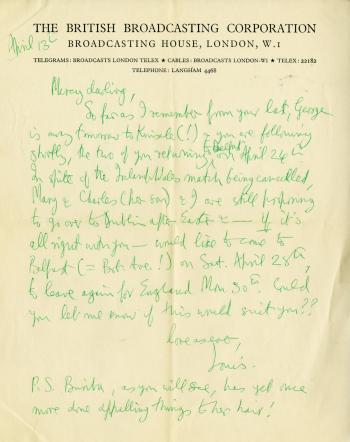 THE BRITISH BROADCASTING CORPORATION
BROADCASTING HOUSE, LONDON, W.1
TELEGRAMS: BROADCASTS LONDON TELEX ★ CABLES: BROADCASTS LONDON-W1 ★ TELEX: 22182
TELEPHONE: LANGHAM 4468
April 13th
Mercy darling,
So far as I remember from your last, George
is away tomorrow to Kinsale (!) & you are following
shortly, the two of you returning to Belfast on April 24th.
In spite of the Ireland-Wales match being cancelled,
Mary & Charles (her son) & I are still proposing
to go over to Dublin after Easter & — if it's
all right with you — would like to come to
Belfast (= Ave.!) on Sat. April 28th,
to leave again for England Mon. 30th. Could
you let me know if this would suit you??
love as ever,
Louis.
P.S. Bimba, as you will see, has yet once
more done appalling things to her hair!